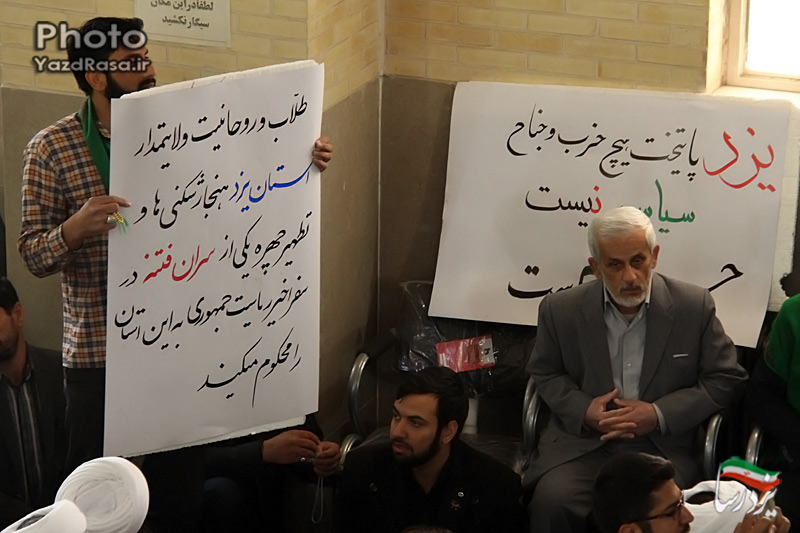 لطفا در این مکان
سیگار نکشید
Photo
YazdRasa.ir
طلاب و روحانیت ولایتمدار
استان یزد هنجارشکنی ها و
تطهیر چهره یکی از سران فتنه در
سفر اخیر ریاست جمهوری به این استان
را محکوم میکنند
یزد پایتخت هیچ حزب و جناح
سیاسی نیست
یزد رسا